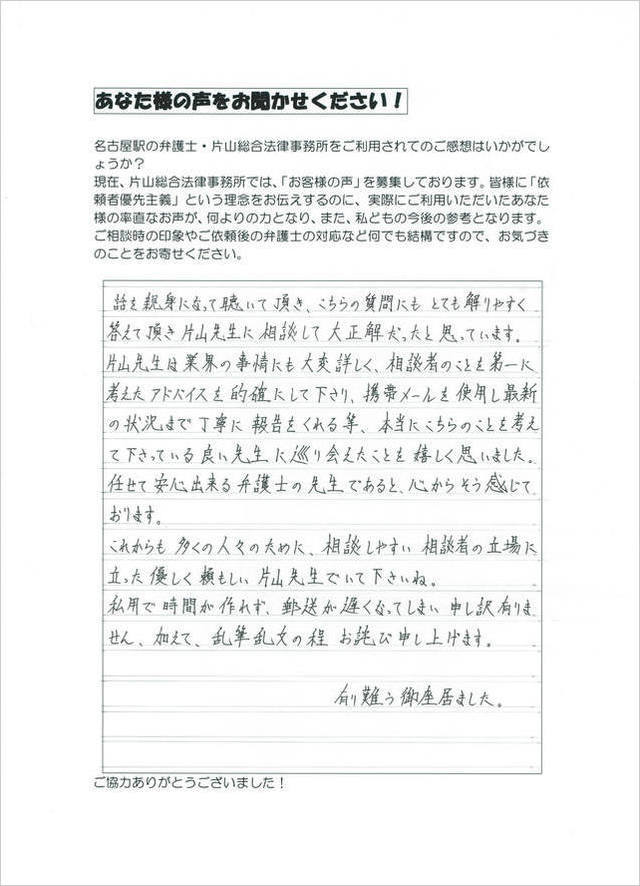 あなた様の声をお聞かせください！
名古屋駅の弁護士・片山総合法律事務所をご利用されてのご感想はいかがでし
ょうか？
現在、片山総合法律事務所では、「お客様の声」を募集しております。皆様に「依
頼者優先主義」という理念をお伝えするのに、実際にご利用いただいたあなた
様の率直なお声が、何よりの力となり、また、私どもの今後の参考となります。
ご相談時の印象やご依頼後の弁護士の対応など何でも結構ですので、お気づき
のことをお寄せください。
話を親身になって聴いて頂き、こちらの質問にも とても解りやすく
答えて頂き 片山先生に 相談して 大正解だったと 思っています。
片山先生は業界の事情にも大変詳しく、相談者のことを第一に
考えた アドバイスを 的確にして下さり、携帯メールを 使用し最新
の状況まで 丁寧に 報告をくれる等、本当にこちらのことを考え
て下さっている良い先生に巡り会えたことを 嬉しく思いました。
任せて 安心出来る 弁護士の 先生であると、心から そう感じて
おります。
これからも 多くの人々のために、相談しやすい 相談者の立場に
立った 優しく 頼もしい 片山先生でいて下さいね。
私用で 時間が 作れず、郵送が 遅くなってしまい 申し訳有りま
せん、加えて、乱筆乱文の程 お詫び申し上げます。
有り難う御座居ました。
ご協力ありがとうございました！